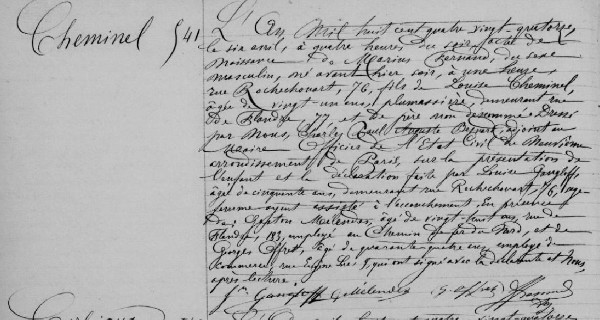 Cheminel 541
L'An Mil huit cent quatre vingt-quatorze,
le six avril, à quatre heures du soir, Acte de
Naissance de Marius Fernand, du sexe
masculin, né avant hier soir, à une heure,
rue Rochechouart, 76, fils de Louise Cheminel,
âgée de vingt un ans, plumassière, demeurant rue
De Flandre, 77, et De père non dénommé Dressé
par Nous, Charles Paul Auguste adjoint au
Maire Officier de l'Etat Civil du Neuvième
arrondissement de Paris, sur la présentation de
l'enfant et la déclaration faite par Louise
âgée de cinquante ans, demeurant rue Rochechouart, 76, sage-
femme ayant assisté à l'accouchement. En présence
de Meilender, âgé de vingt-huit ans, rue de
Flandre, employé au Chemin de fer du Nord, et de
Georges Effret, âgé de quarante quatre ans, employé de
commerce, rue qui ont signé avec la déclarante et Nous,
après lecture.
G. Meilender G. Effret